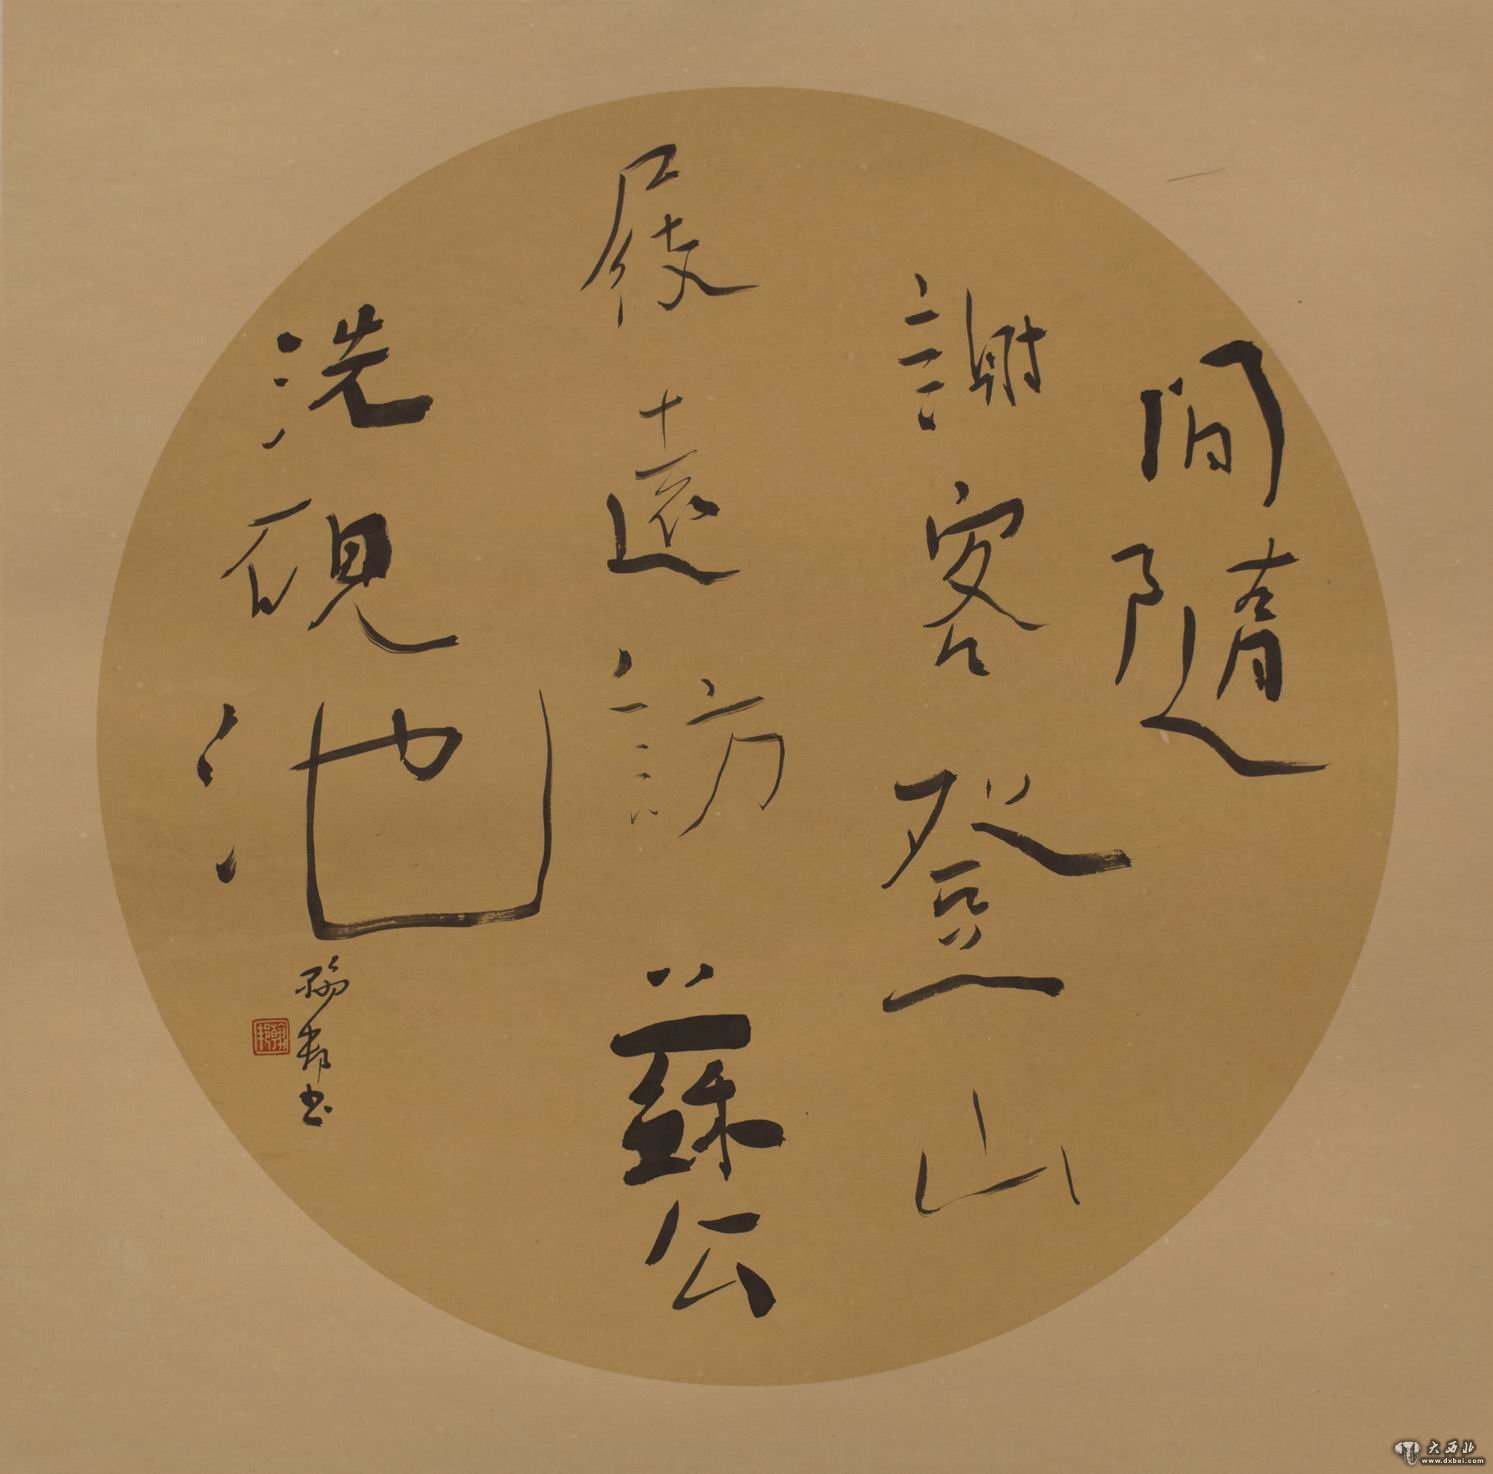 間隨
謝客登山
屐遠訪蘇公
洗硯池
邦書
大西北
www.dxbei.com